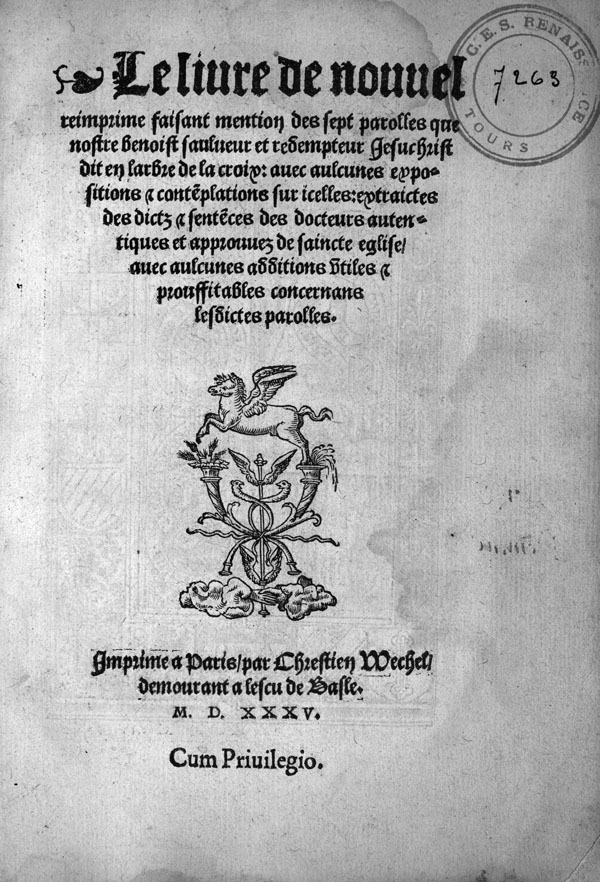 Le liure de nouuel
reimprime faisant mention des sept parolles que
nostre benoist saulueur et redempteur Jesuchrist
dit en larbre de la croix: auec aulcunes expo-
sitions ⁊ contẽplations sur icelles: extraictes
des dictz ⁊ sentẽces des docteurs auten-
tiques et approuuez de saincte eglise/
auec aulcunes additions vtiles ⁊
prouffitables concernans
lesdictes parolles.
Imprime a Paris/ par Chrestien Wechel/
demourant a lescu de Basle.
M. D. XXXV.
Cum Priuilegio.
C.E.S. RENAISSANCE
TOURS
7263